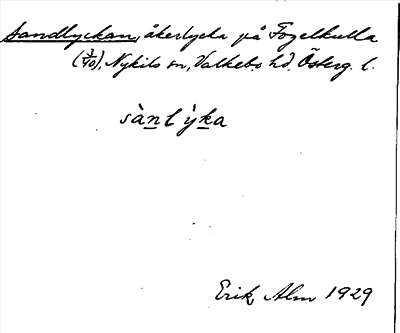 Sandlyckan, åkerlycka på Fogelkulla
(3/40), Nykils sn, Valkebo hd. Österg. l.
sànlỳka
Erik Alm 1929